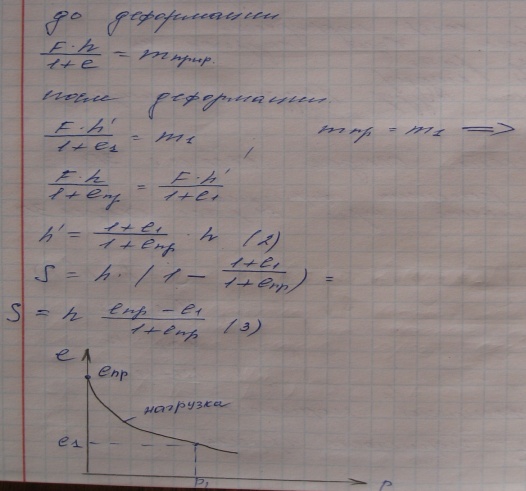 до деформации
F·h / 1+e = m прир.
после деформации
F·h' / 1+e₁ = m₁   m пр = m₁ ⟹
F·h / 1+e пр = F·h' / 1+e₁
h' = 1+e₁ / 1+e пр · h (2)
S = h·(1 − 1+e₁ / 1+e пр) =
S = h e пр − e₁ / 1+e пр (3)
e
e пр
нагрузка
e₁
p₁
p